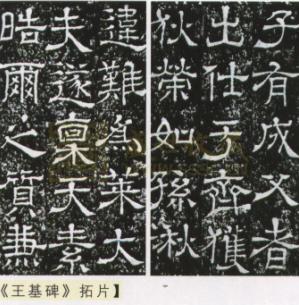 子有成父者
出仕于齊獲
狄榮如孫秋
違難為萊大
夫遂稟天素
晧爾之質兼
《王基碑》拓片】